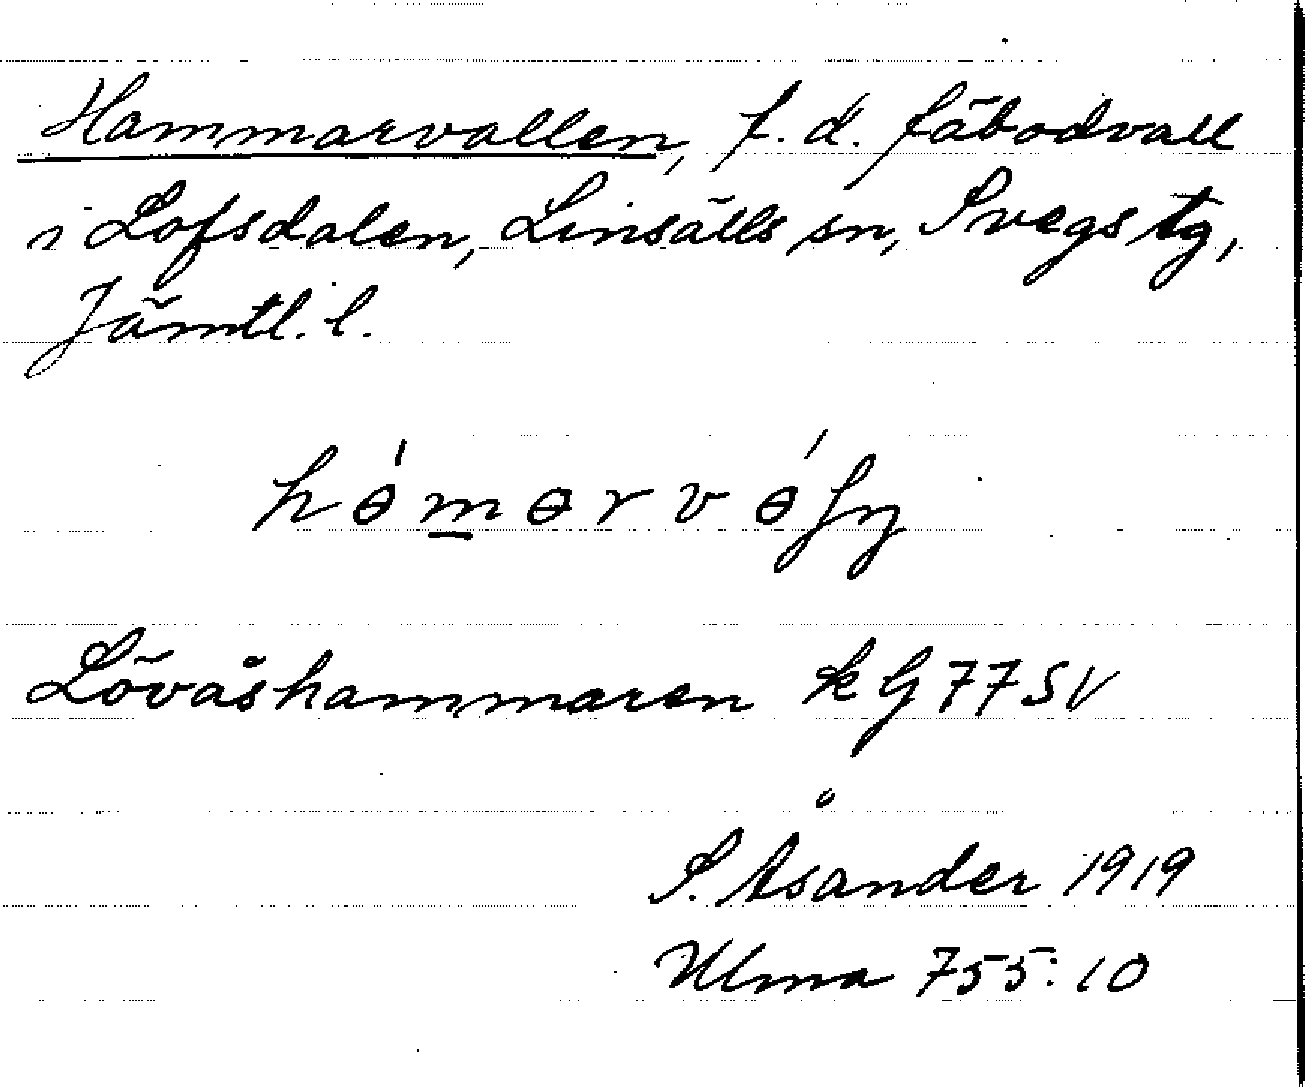 Hammarvallen, f.d. fäbodvall
i Lofsdalen, Linsälls sn, Svegs tg,
Jämtl. l.
Lövåshammaren k G 77 SV
S. Åsander 1919
Ulma 755:10